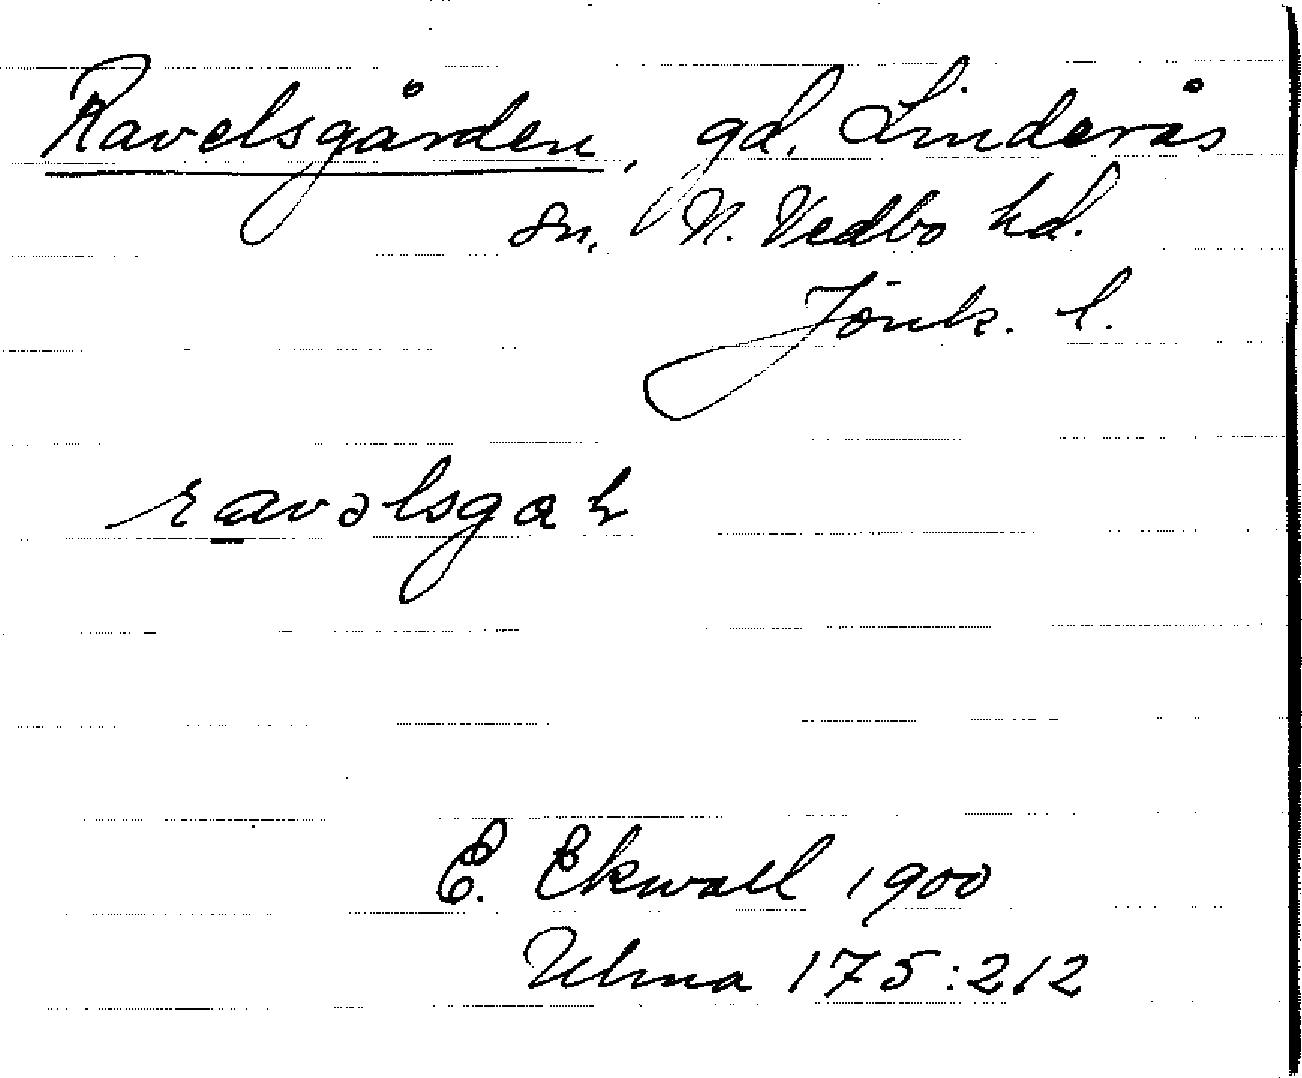 Ravelsgården, gd. Linderås
sn, N. Vedbo hd.
Jönk. l.
ravəlsgaɦ
E. Ekwall 1900
Ulma 175:212